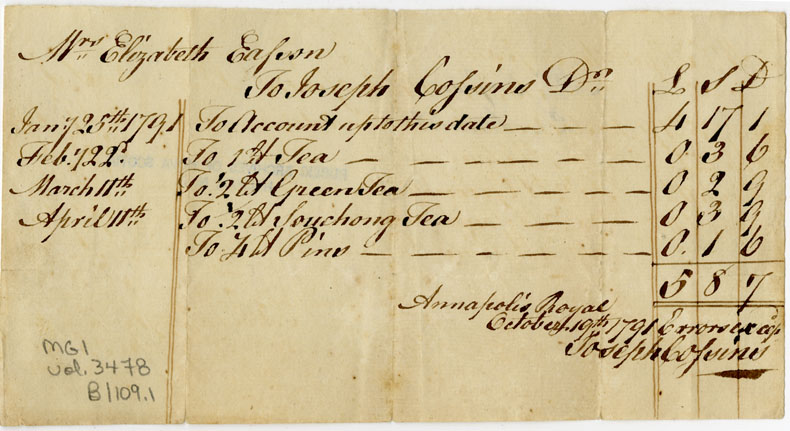 Mrs Elizabeth Eaſson
To Joseph Coſsins Dr
£ S D
Jany 25th 1791 To Account up to this date — — — — 4 17 1
Feby 22d To 1 lt Tea — — — — — — — 0 3 6
March 11th To 1/2 lt Green Tea — — — — — — 0 2 9
April 11th To 1/2 lt Souchong Tea — — — — — 0 3 9
To 1/4 lt Pins — — — — — — — — 0 1 6
5 8 7
Annapolis Royal
October 19th 1791 Errors excp
Joseph Coſsins
MG1
vol. 3478
B/109.1